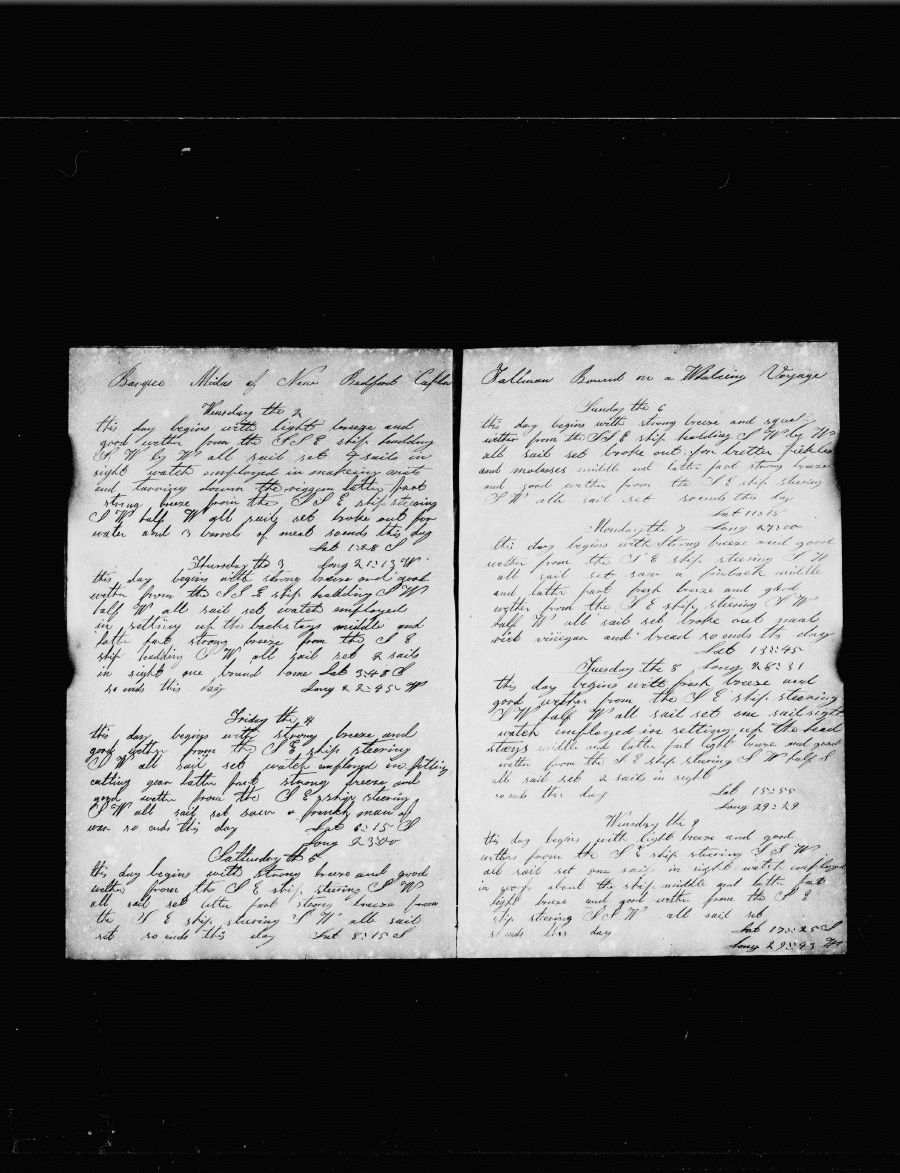 Barque Midas of New Bedford Capta
Wensday the 2
this day begins with light breeze and
good wether from the S S E ship heedding
S W by W all sail set 4 sails in
sight watch employed in makeing mats
and tarring down the riggin latter part
strong breeze from the S S E ship steering
S W half W all sail set broke out for
water and 3 barels of meat so ends this day
Lat 1::28 S
Thursday the 3 Long 21::13 W
this day begins with strong breeze and good
wether from the S S E ship headding S W
half W all sail set watch employed
in setting up the backstays middle and
latter part strong breeze from the S E
ship hedding S W all sail set 2 sails
in sight one bound home Lat 3::48 S
so ends this day Long 22::45 W
Friday the 4
this day begins with strong breeze and
good wether from the S E ship steering
S W all sail set watch employed in fitting
cutting gear latter part strong breeze and
good wether from the S E ship steering
S W all sail set saw a french man of
war so ends this day Lat 6::15 S
Long 23::00
Satturday the 5
this day begins with strong breeze and good
wether from the S E ship steering S W
all sail set latter part strong breeze from
the S E ship steering S W all sail
set so ends this day Lat 8::15 S
Tallman Bound on a Whaleing Voyage
Sunday the 6
this day begins with strong breeze and squal
wether from the S S E ship headding S W by W
all sail set broke out for butter
and molasses middle and latter part strong breeze
and good wether from the S E ship steering
S W all sail set so ends this day
Lat 11::15
Monday the 7 Long 27::00
this day begins with strong breeze and good
wether from the S E ship steering S W
all sail set saw a finback middle
and latter part fresh breeze and good
wether from the S E ship steering S W
half W all sail set broke out
vinegar and bread so ends this day
Lat 13::45
Tuesday the 8 Long 28::31
this day begins with fresh breeze and
good wether from the S E ship steering
S W half W all sail set one sail sight
watch employed in setting up the head
stays middle and latter part light breeze and good
wether from the S E ship steering S W half S
all sail set 2 sails in sight
so ends this day Lat 15::55
Long 29::29
Winsday the 9
this day begins with light breeze and good
wether from the S E ship steering S S W
all sail set one sail in sight watch employed
in about the ship middle and latter part
light breeze and good wether from the S E
ship steering S S W all sail set
so ends this day Lat 17::25 S
Long 29::43 W